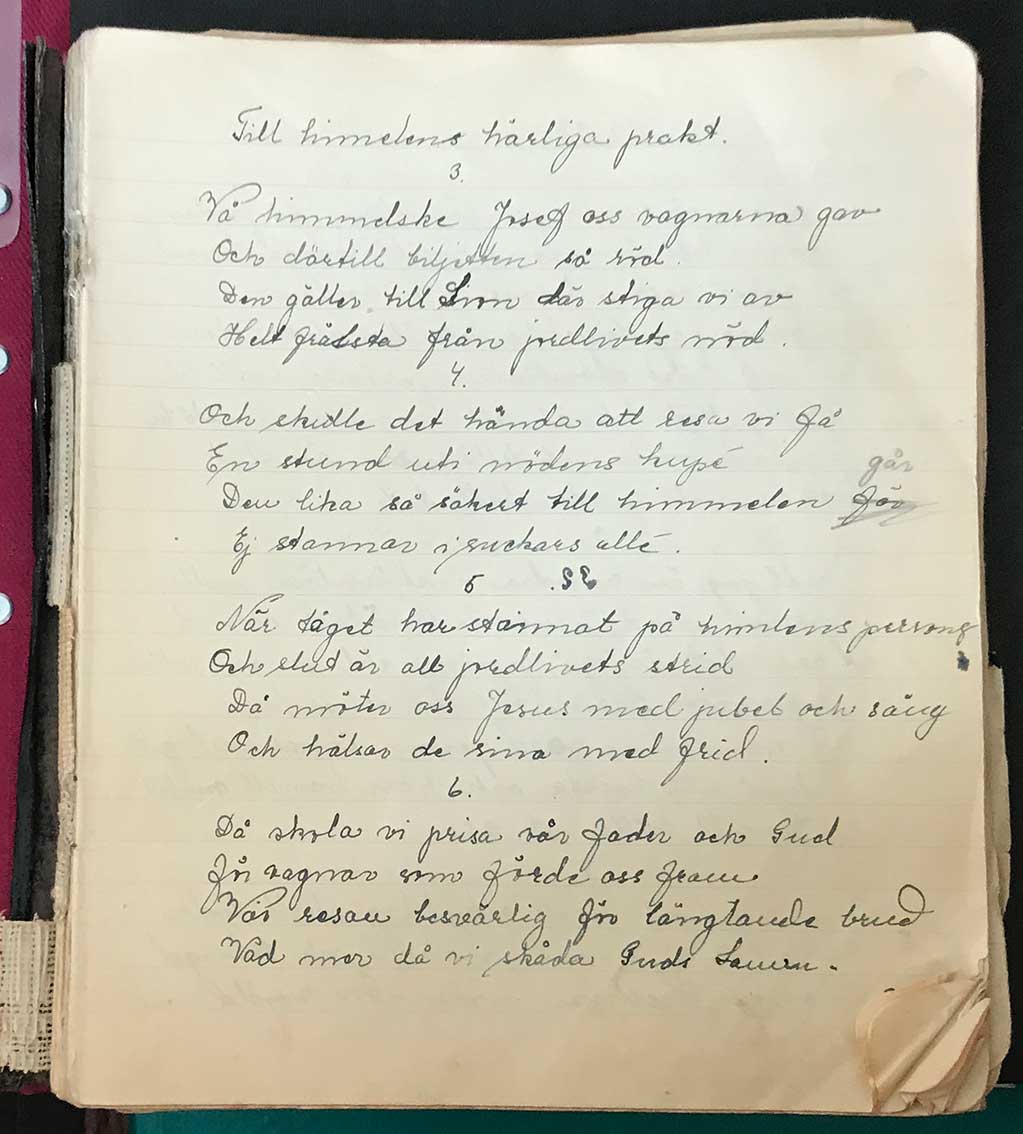 Till himelens härliga prakt.
3.
Vå himmelske Josef oss vagnarna gav
Och därtill biljetten så röd.
Den gäller till Sion där stiga vi av
Helt frälsta från jordlivets nöd.
4.
Och skulle det hända att resa vi få
En stund uti nödens kupé
går
Den lika så säkert till himmelen för
Ej stannar i suckars allé.
5
När tåget har stannat på himlens perrong
Och slut är all jordlivets strid
Då möter oss Jesus med jubel och sång
Och hälsar de sina med frid.
6.
Då skola vi prisa vår fader och Gud
För vagnar som förde oss fram
Var resan besvärlig för längtande brud
Vad mer då vi skåda Guds Lamm.